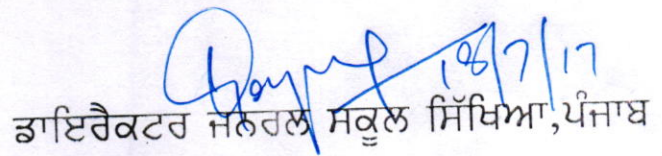 18/7/17
ਡਾਇਰੈਕਟਰ ਜਨਰਲ ਸਕੂਲ ਸਿੱਖਿਆ,ਪੰਜਾਬ